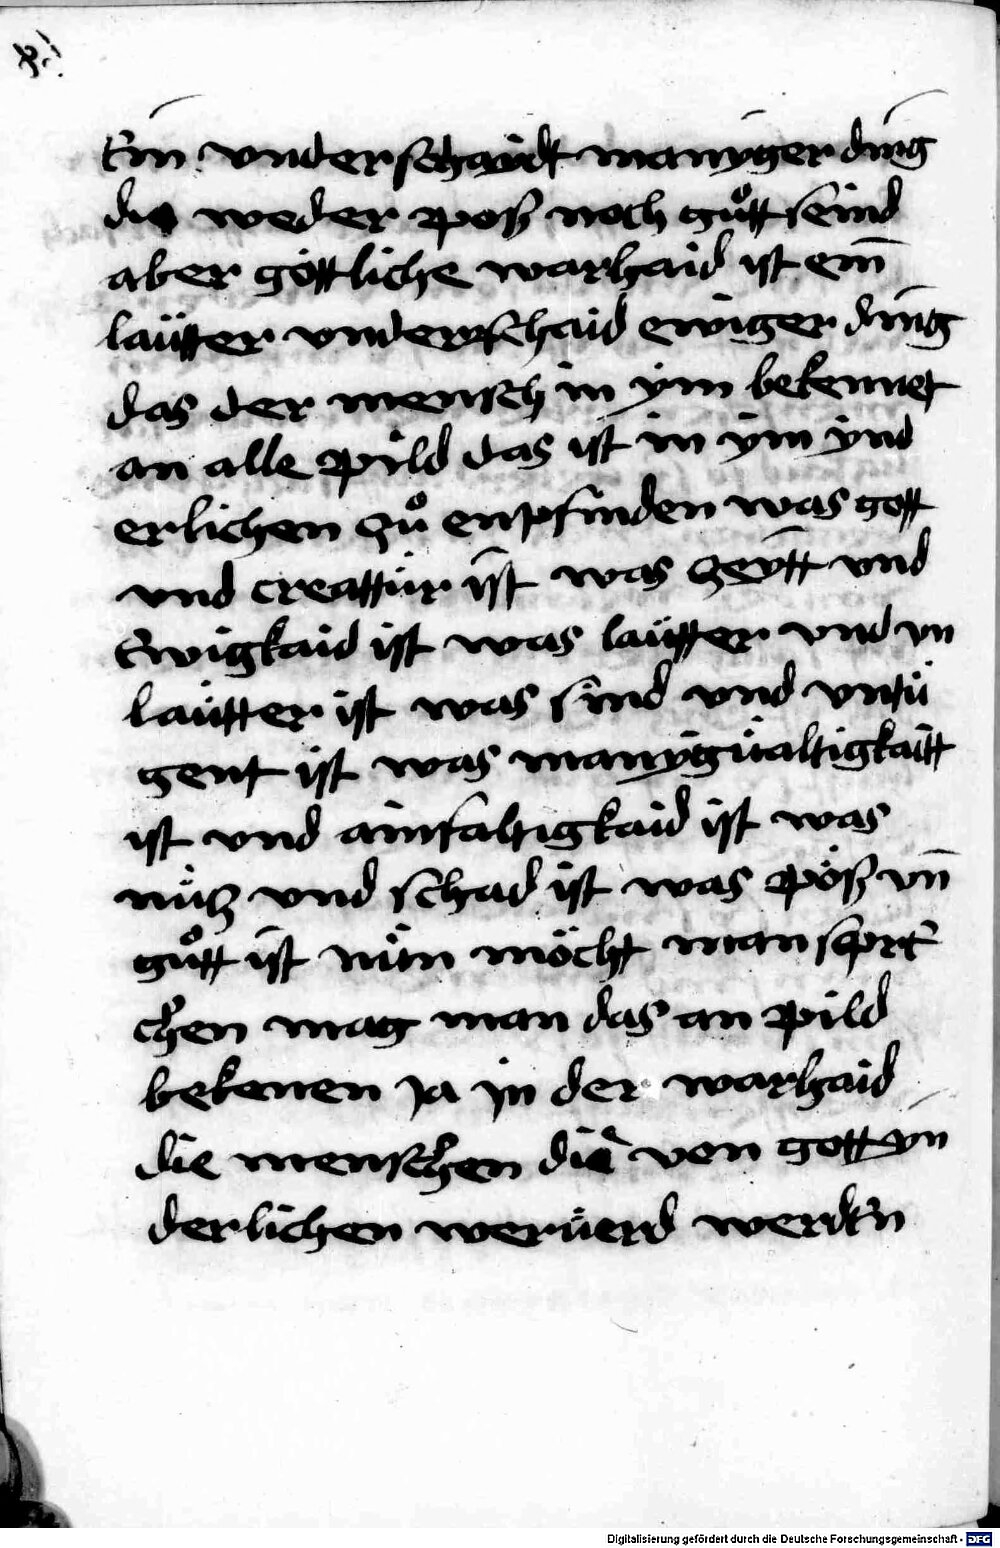 Ein vnderschaydt manyger ding
die weder poß noch gůtt seind
aber göttliche warhaid ist ein̄
laütter vnderschaid ewiger ding
das der mensch in ÿm bekennet
an alle pild das ist in ÿm ÿnd
erlichen zů enpfinden was gott
vnd creattür ist was zeÿtt vnd
Ewigkaid ist was laütter vnd vn
laütter ist was sind vnd vntu
gent ist was manÿgualtigkaitt
ist vnd ainfaltigkaid ist was
nütz vnd schad ist was pöß vn̄
gůtt ist nün möcht man spre
chen mag man das an pild
bekenen ja jn der warhaid
die menschen die von gott vn̄
derlichen werüerd werden
Digitalisierung gefördert durch die Deutsche Forschungsgemeinschaft - DFG